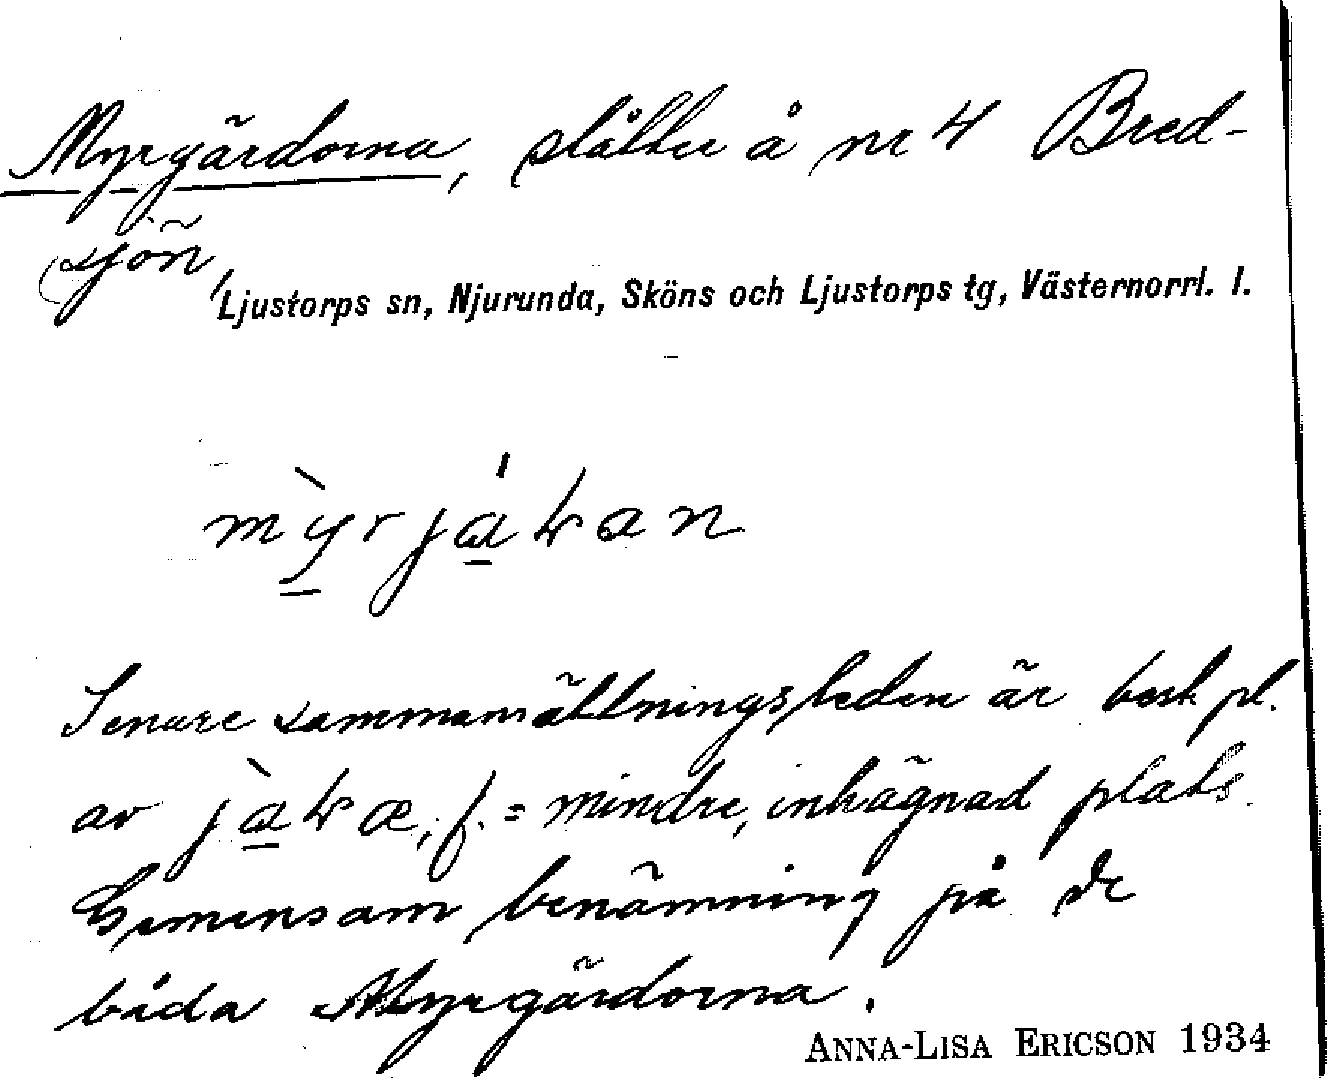 Myrgärdorna, slåtter å nr 4 Bred-
sjön,
Ljustorps sn, Njurunda, Sköns och Ljustorps tg, Västernorrl. l.
Senare sammansättningsleden är best pl.
av f. = mindre, inhägnad plats.
Gemensam benämning på de
båda Myrgärdorna.
ANNA-LISA ERICSON 1934